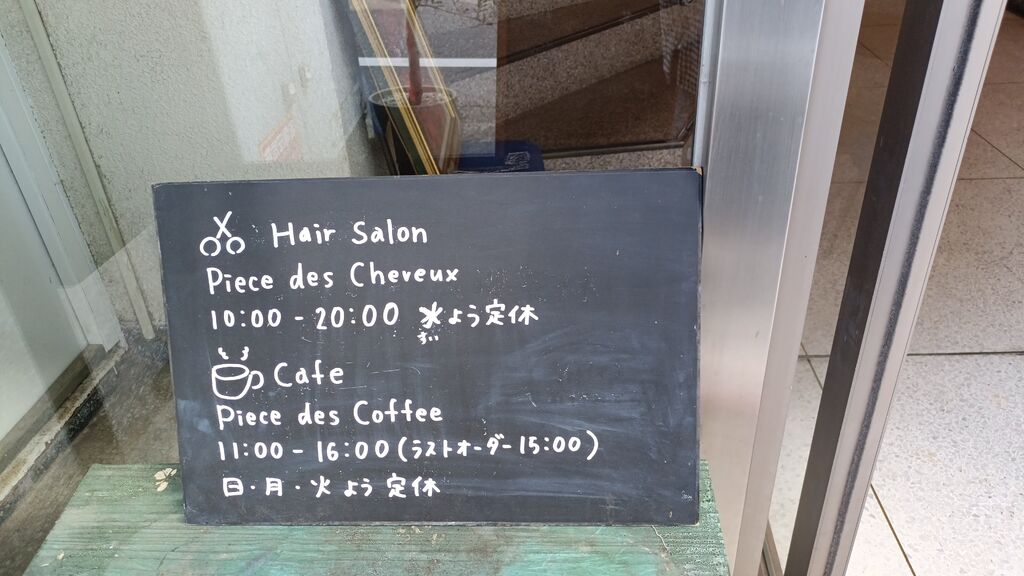 Hair Salon
Piece des Cheveux
10:00 - 20:00 水よう定休
Cafe
Piece des Coffee
11:00 - 16:00 (ラストオーダー 15:00)
日・月・火よう定休